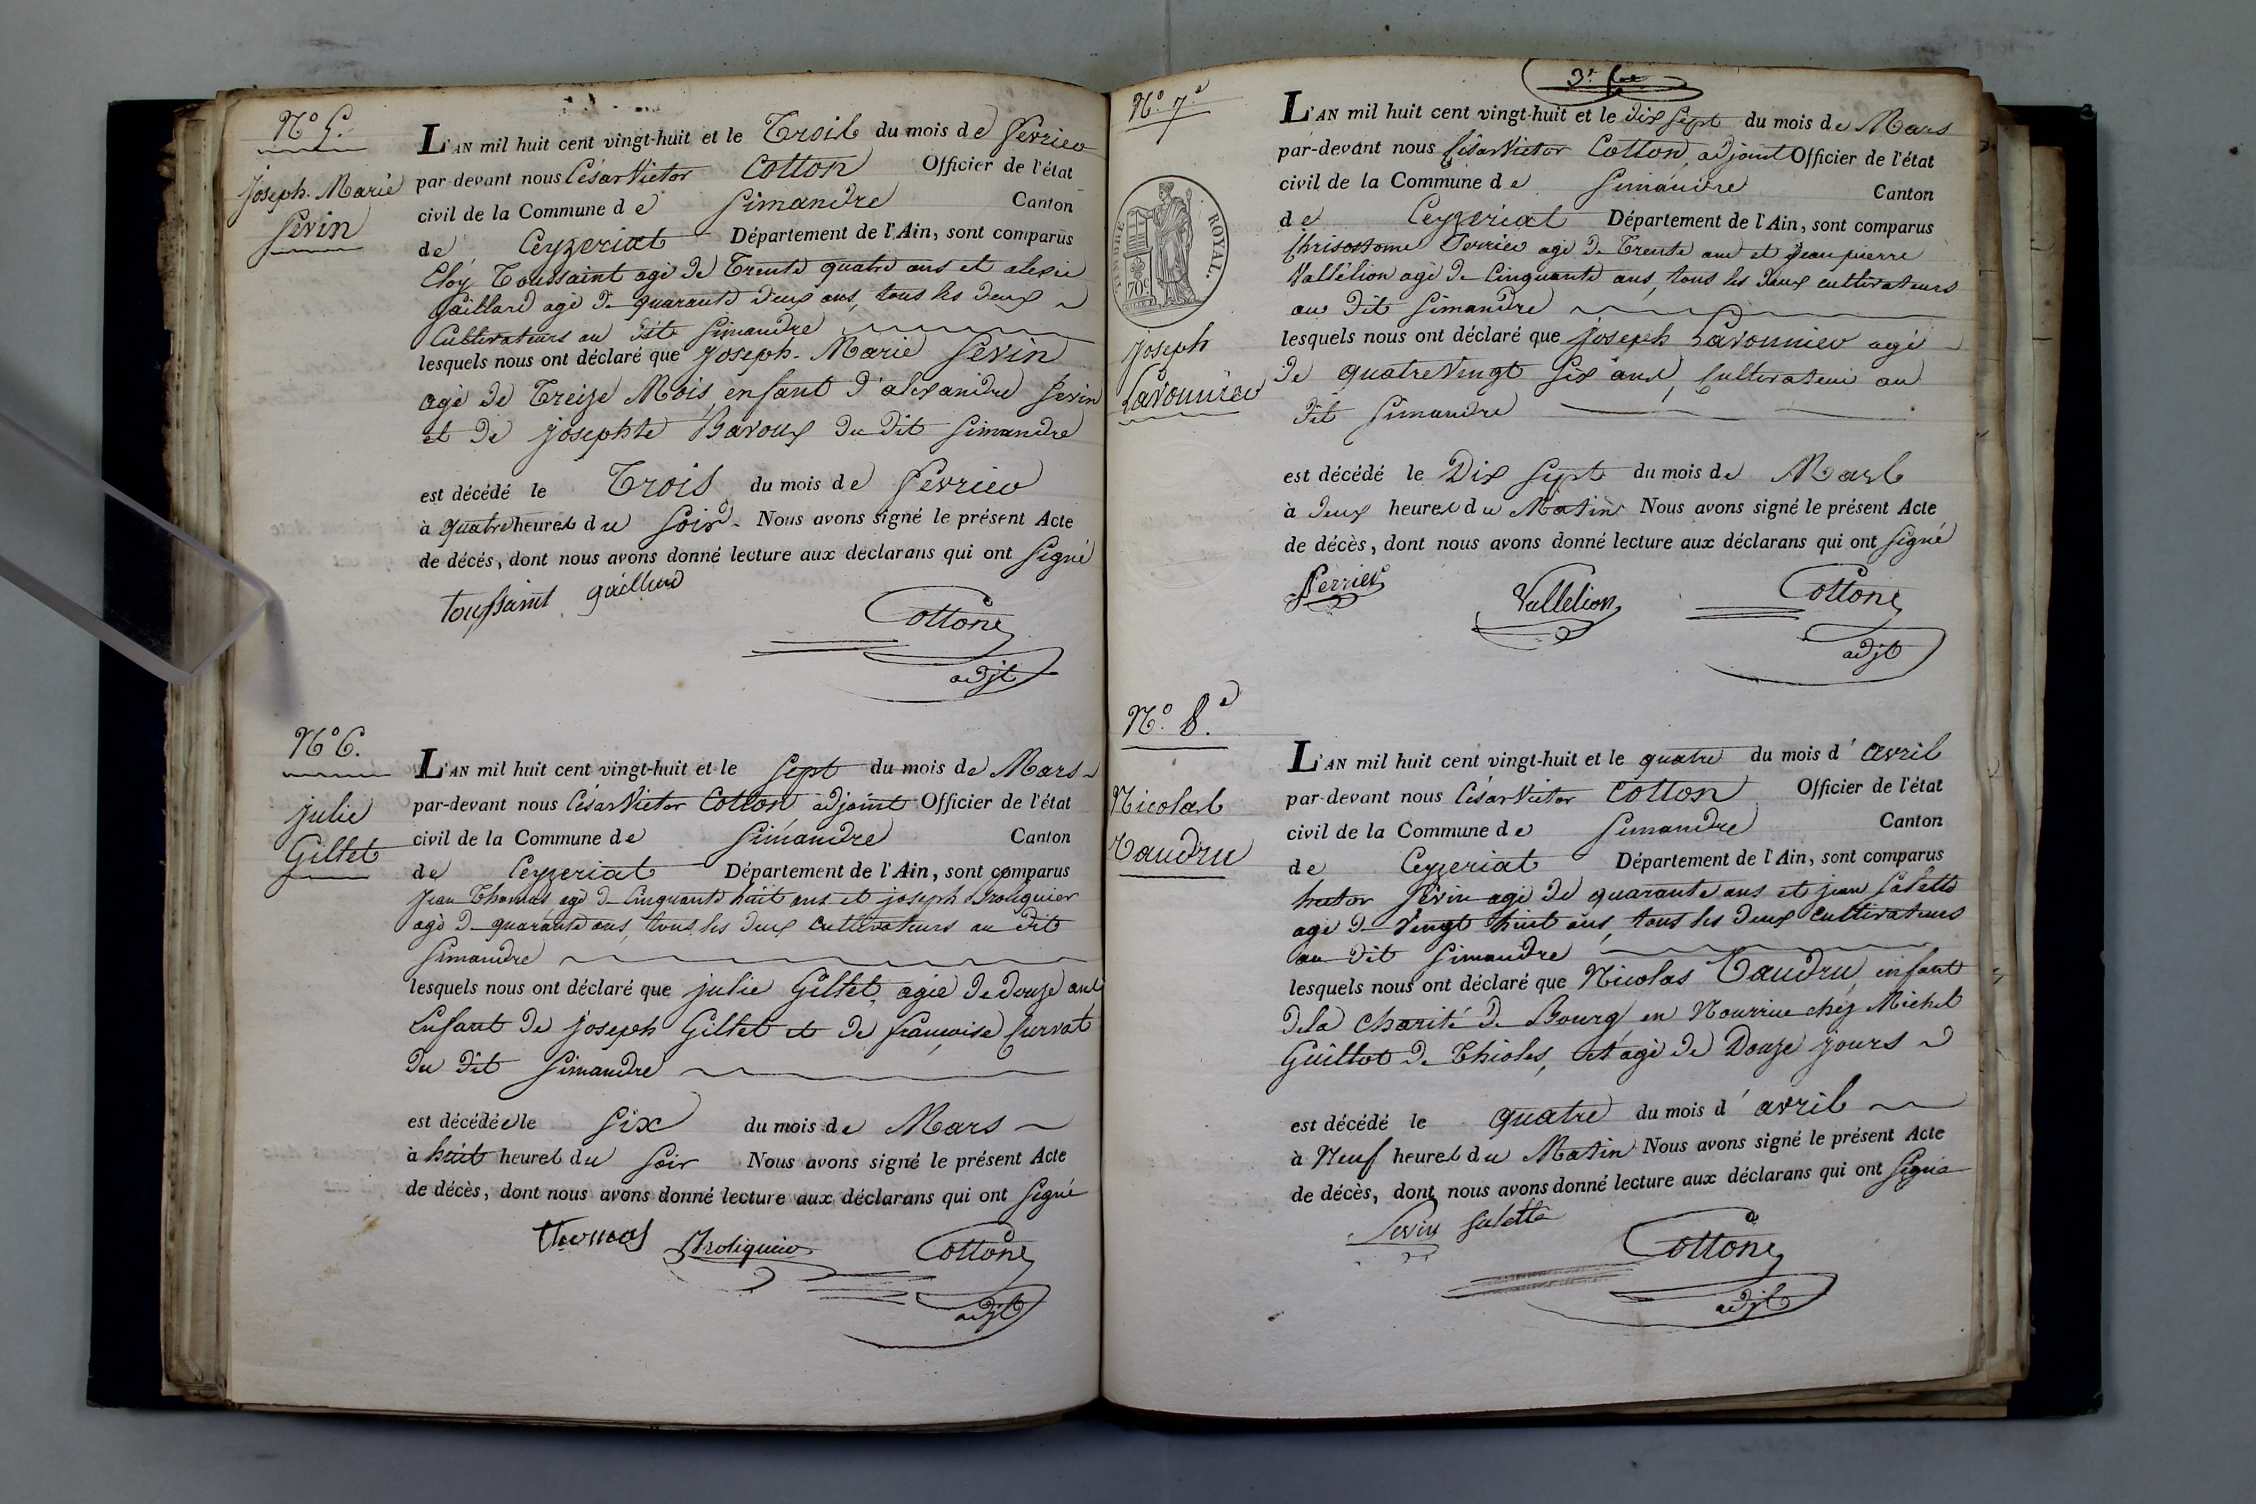 N.o 5.
Joseph-Marie
Sevin
L'AN mil huit cent vingt-huit et le Trois du mois de Fevrier
par-devant nous César Victor Cotton Officier de l'état
civil de la Commune de Simandre Canton
de Ceyzeriat Département de l'Ain, sont comparus
Eloy Toussaint agé de Trente quatre ans et alexis
Gaillard agé de quarante deux ans, tous les deux
Cultivateurs au dit Simandre
lesquels nous ont déclaré que Joseph-Marie Sevin
agé de Treize Mois, enfant d'alexandre Sevin
et de josephte Bavoux du dit Simandre
est décédé le Trois du mois de Fevrier
à quatre heures du Soir. Nous avons signé le présent Acte
de décès, dont nous avons donné lecture aux déclarans qui ont Signé
Toussaint gaillard
Cotton
adjt
N.o 6.
julie
Giltet
L'AN mil huit cent vingt-huit et le Sept du mois de Mars
par-devant nous César Victor Cotton adjoint Officier de l'état
civil de la Commune de Simandre Canton
de Ceyzeriat Département de l'Ain, sont comparus
Jean Thomas agé de Cinquante huit ans et joseph Broliquier
agé de quarante ans, tous les deux cultivateurs au dit
Simandre
lesquels nous ont déclaré que julie Giltet, agée de douze ans
Enfant de joseph Giltet et de françoise Survat
du dit Simandre
est décédée le Six du mois de Mars
à huit heures du Soir Nous avons signé le présent Acte
de décès, dont nous avons donné lecture aux déclarans qui ont Signé
Thomas Broliquier Cotton
adjt
3.e
N.o 7.e
TIMBRE ROYAL.
70c
Joseph
Lavonnier
L'AN mil huit cent vingt-huit et le dix Sept du mois de Mars
par-devant nous César Victor Cotton, adjoint Officier de l'état
civil de la Commune de Simandre Canton
de Ceyzeriat Département de l'Ain, sont comparus
Chrisostome Perrier agé de Trente ans et Jean pierre
Vallélion agé de Cinquante ans, tous les deux cultivateurs
au dit Simandre
lesquels nous ont déclaré que Joseph Lavonnier agé
de quatre Vingt Six ans, Cultivateur au
dit Simandre
est décédé le Dix Sept du mois de Mars
à deux heures du Matin Nous avons signé le présent Acte
de décès, dont nous avons donné lecture aux déclarans qui ont Signé
Perrier Vallelion Cotton
adjt
N.o 8.e
Nicolas
Taudru
L'AN mil huit cent vingt-huit et le quatre du mois d'avril
par-devant nous César Victor Cotton Officier de l'état
civil de la Commune de Simandre Canton
de Ceyzeriat Département de l'Ain, sont comparus
hector Sevin agé de quarante ans et jean Salette
agé de Vingt huit ans, tous les deux cultivateurs
au dit Simandre
lesquels nous ont déclaré que Nicolas Taudru, enfant
de la Charité de Bourg, en Nourrice chez Michel
Guillot de Thioles, et agé de Douze jours
est décédé le quatre du mois d'avril
à Neuf heures du Matin Nous avons signé le présent Acte
de décès, dont nous avons donné lecture aux déclarans qui ont Signé
Sevin Salette
Cotton
adjt